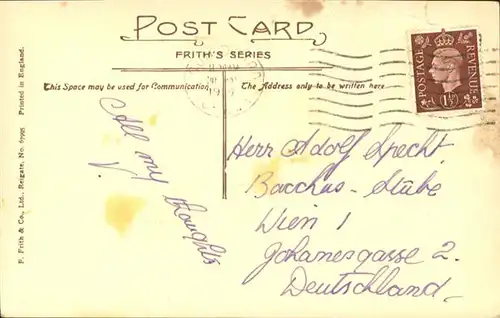 POST CARD
FRITH'S SERIES
This Space may be used for Communication.
The Address only to be written here
POSTAGE
REVENUE
1½D
All my
thoughts
V.
Herr Adolf Specht
Bacchus-Stube
Wien 1
Johanesgasse 2.
Deutschland.
F. Frith & Co., Ltd., Reigate, No.
Printed in England.